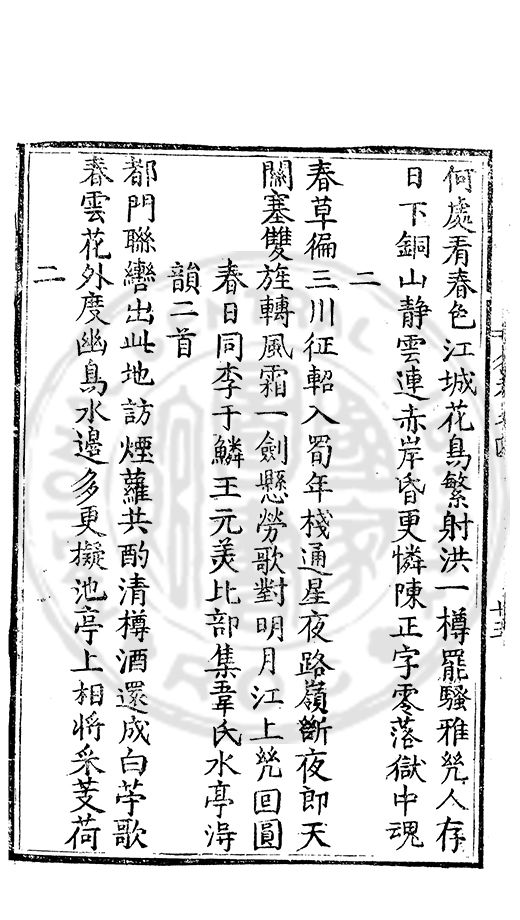 何處看春色江城花鳥繁射洪一樽罷騷雅幾人存
日下銅山靜雲連赤岸昏更憐陳正字零落獄中魂
二
春草徧三川征軺入蜀年棧通星夜路嶺斷夜郎天
關塞雙旌轉風霜一劍懸勞歌對明月江上㡬回圓
春日同李于鱗王元美比部集韋氏水亭得
韻二首
都門聯轡出此地訪煙蘿共酌清樽酒還成白苧歌
春雲花外度幽鳥水邊多更擬池亭上相將采芰荷
二